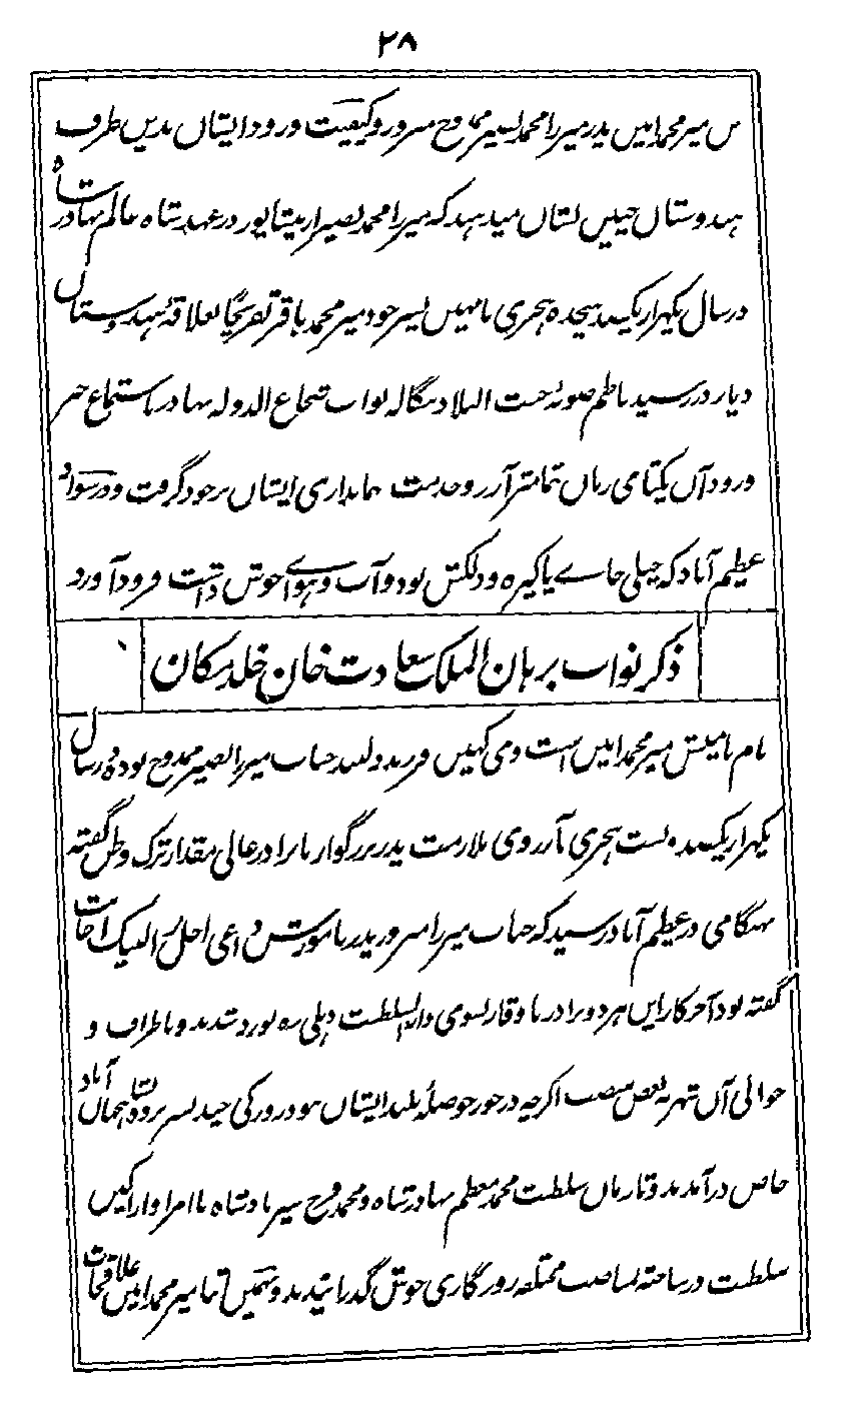 ۲۸
س میر محمد امین پدر میرزا محمد نصیر ممدوح سرور و کیفیت ورود ایشاں بدیں طرف
ہندوستاں چنیں نشاں میدہند کہ میرزا محمد نصیر از نیشاپور در عہد شاہ عالم بہادر شاہ
در سال یکہزار یکصد ہیجدہ ہجری با مہیں پسر خود میر محمد باقر تفریحاً بعلاقۂ ہندوستاں
دیار در رسید ناظم صوبۂ جنت البلاد بنگالہ نواب شجاع الدولہ بہادر باستماع خبر
ورود آں یکتای زماں تمامتر آرزو خدمت مہمانداری ایشاں بر خود گرفت و در سواد
عظیم آباد کہ خیلی جاے پاکیزہ و دلکش بود و آب و ہواے خوش داشت فرود آورد
ذکر نواب برہان الملک سعادت خان خلد مکان
نام نامیش میر محمد امیں است و می کہیں فرزند دلبند جناب میرزا نصیر ممدوح بودہ در سال
یکہزار یکصد بست ہجری بآرزوی ملازمت پدر بزرگوار با برادر عالی مقدار ترک وطں گفتہ
ہنگامی در عظیم آباد رسید کہ جناب میرزا سرور پدر نامورش داعی اجل را لبیک اجابت
گفتہ بود آخر کار ایں ہر دو برادر با وقار بسوی دار السلطنت دہلی رہ نورد شدند و باطراف و
حوالی آں شہر بعض منصب اگرچہ در خور حوصلۂ بلند ایشاں نبود روزکی چند بسر بردہ بشاہجہاں آباد
خاص در آمدند و تا زماں سلطنت محمد معظم بہادر شاہ و محمد فرخ سیر بادشاہ با امرا و اراکیں
سلطنت در ساختہ بمناصب مختلفہ روزگاری خوش گذرانیدند و ہمیں تا میر محمد امیں علاقجات